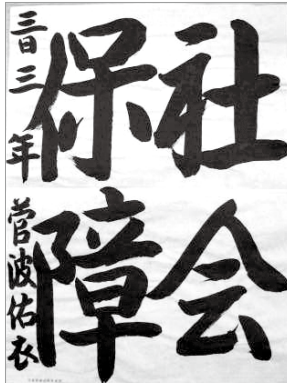 社会
保障
三年 菅波佑衣